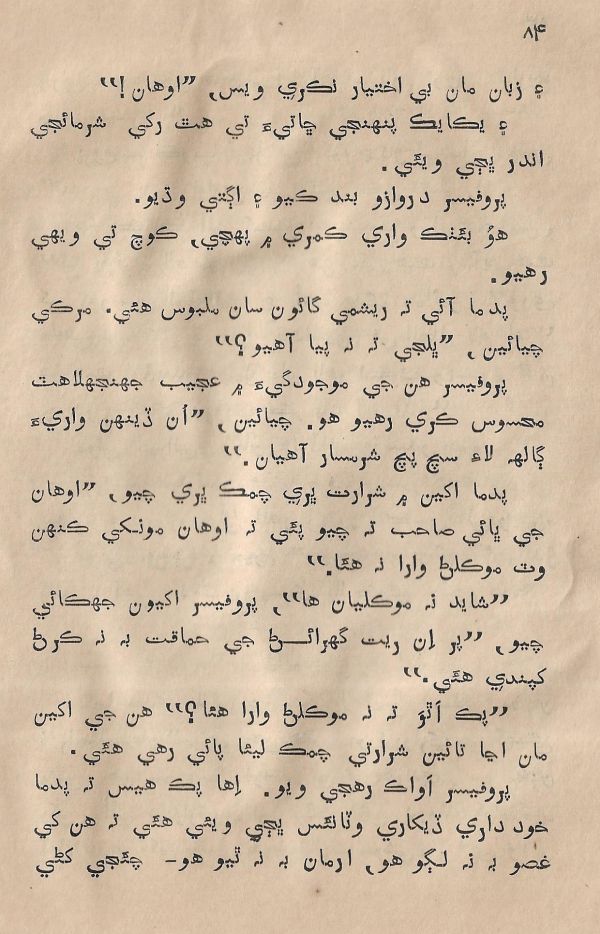 ۸۴
۽ زبان مان بي اختيار نڪري ويس, ”اوهان!“
۽ يڪايڪ پنهنجي ڇاتيءَ تي هٿ رکي شرمائجي
اندر ڀڄي ويئي.
پروفيسر دروازو بند ڪيو ۽ اڳتي وڌيو.
هوُ بئٺڪ واري ڪمري ۾ پهچي, ڪوچ تي ويهي
رهيو.
پدما آئي تہ ريشمي گائون سان ملبوس هئي. مرڪي
چيائين, ”ڀلجي تہ نہ پيا آهيو؟“
پروفيسر هن جي موجودگيءَ ۾ عجيب جهنجهلاهٽ
محسوس ڪري رهيو هو. چيائين, ”اُن ڏينهن واريءَ
ڳالهہ لاءِ سچ پچ شرمسار آهيان.“
پدما اکين ۾ شرارت ڀري چمڪ ڀري چيو, ”اوهان
جي ڀائي صاحب تہ چيو پئي تہ اوهان مونکي ڪنهن
وٽ موڪلڻ وارا نہ هئا.“
”شايد نہ موڪليان ها“, پروفيسر اکيون جهڪائي
چيو, ”پر اِن ريت گهرائڻ جي حماقت بہ نہ ڪرڻ
کپندي هئي.“
”پڪ اَٿوَ تہ نہ موڪلڻ وارا هئا؟“ هن جي اکين
مان اڃا تائين شرارتي چمڪ ليئا پائي رهي هئي.
پروفيسر اَواڪ رهجي ويو. اِها پڪ هيس تہ پدما
خود داري ڏيکاري وٽائنس ڀڄي ويئي هئي تہ هن کي
غصو بہ نہ لڳو هو, ارمان بہ نہ ٿيو هو- چئجي کڻي